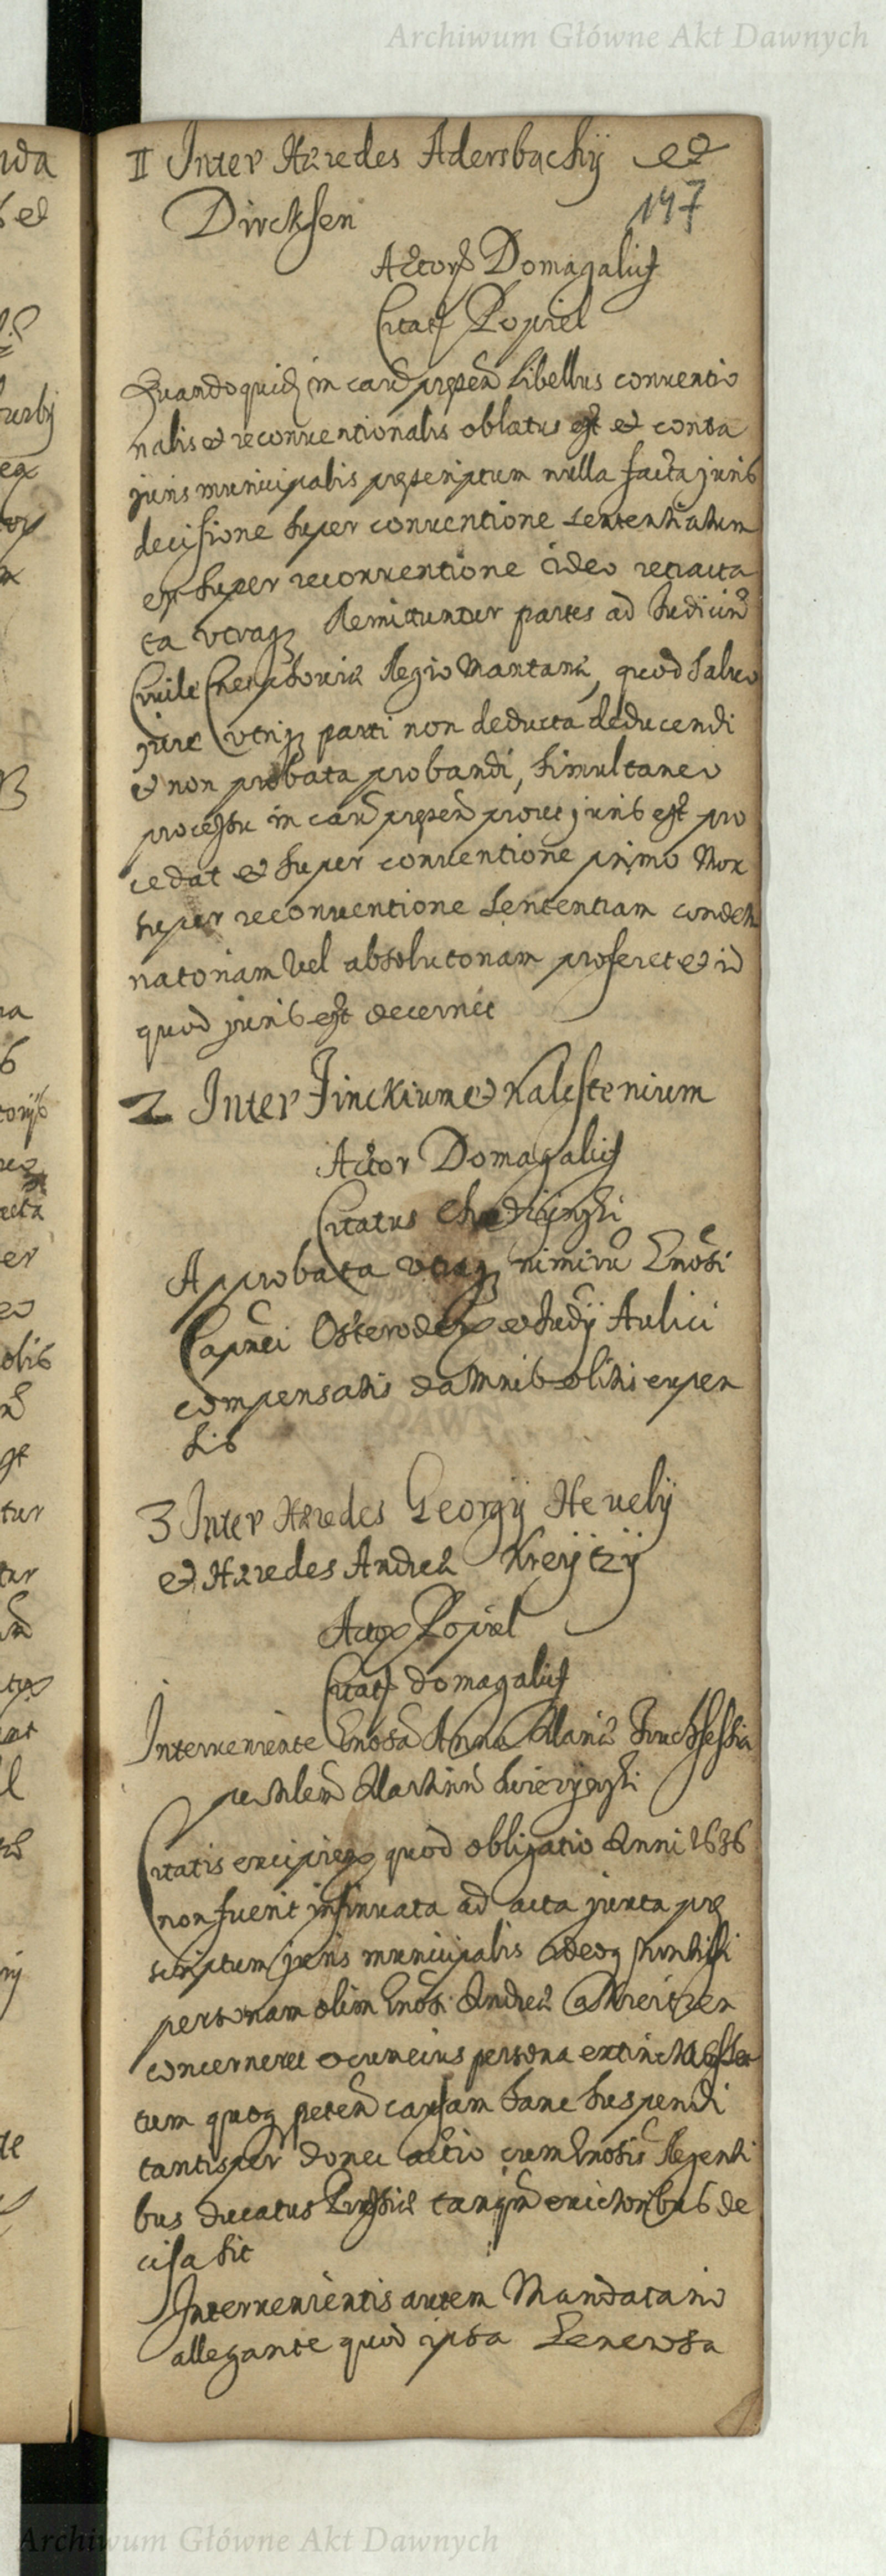 Archiwum Główne Akt Dawnych
II Inter Hæredes Adersbachij et
Dircksen
147
Actor Domagalius
Citat Popiel
Quandoquid in caus præsen Libellus conventio
nalis et reconventionalis oblatus est et contra
juris municipalis præscriptum nulla facta juris
decisione super conventione sententiatum
est super reconventione ideo retracta
ta utraq Remittuntur partes ad Judiciu
Civile Regio Mantanæ, quod salvo
jure utriq parti non deducta deducendi
et non probata probandi, simultaneo
processu in cau præsen prout juris est pro
cedat et super conventione primo Mox
super reconventione sententiam condem
natoriam vel absolutoriam proferet et id
quod juris est decernet
2 Inter Finckium et Kalestenium
Actor Domagalius
Citatus
Approbata utraq nimiru Gnosi
Capnei Osteroden et Judij Aulici
compensatis damnis litis expen
sis
3 Inter Hæredes Georgij Hevelij
et Hæredes Andreæ Kreijtzij
Actor Popiel
Citat Domagalius
Interveniente Gnosa Anna Maria Truchsessia
per Nlem Martinu
Citatis excipien quod obligatio Anni 1636
non fuerit insinuata ad acta juxta præ
scriptum juris municipalis adeoq
personam olim Gnosi Andreæ a Kreitzen
concerneret et cum eius persona extincta esset
tum quoq peten causam hanc suspendi
tantisper donec actio cum Gnosis Regenti
bus Ducatus Prussiæ tanqm evictoribus de
cisa sit
Intervenientis autem Mandatario
allegante quod ipsa Generosa
Archiwum Główne Akt Dawnych